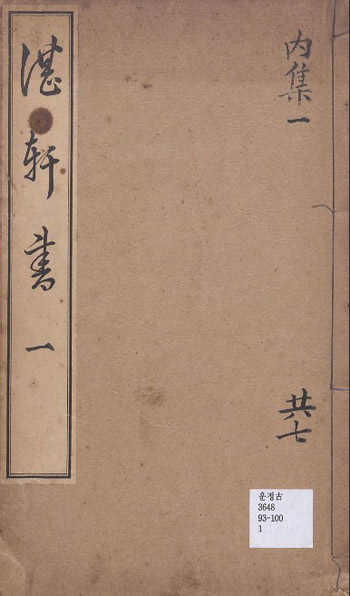 湛軒書 一
內集 一
共七
운정古
3648
93-100
1